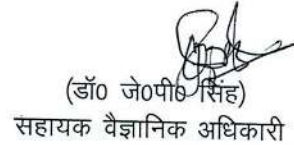 (डॉ0 जे0पी0 सिंह)
सहायक वैज्ञानिक अधिकारी